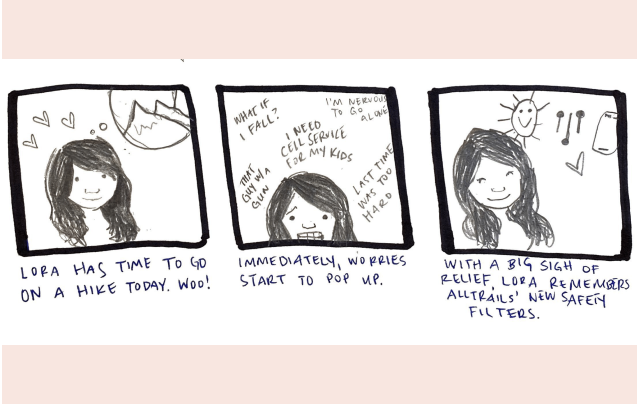 LORA HAS TIME TO GO
ON A HIKE TODAY. WOO!
WHAT IF
I FALL?
I'M NERVOUS
TO GO
ALONE
I NEED
CELL SERVICE
FOR MY KIDS
THAT
GUY W/A
GUN
LAST TIME
WAS TOO
HARD
IMMEDIATELY, WORRIES
START TO POP UP.
WITH A BIG SIGH OF
RELIEF, LORA REMEMBERS
ALLTRAILS' NEW SAFETY
FILTERS.